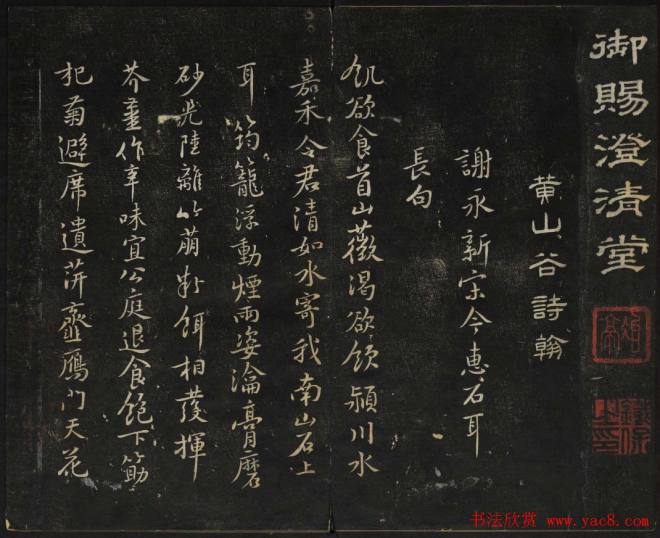 御賜澄清堂
黄山谷詩翰
謝永新宋令惠石耳
長句
飢欲食首山薇渴欲飲潁川水
嘉禾令君清如水寄我南山石上
耳筠籠浮動煙雨姿瀹膏磨
砂光陸離竹萌粉餌相發揮
芥薑作辛味宜公庭退食飽下筯
杞菊避席遺萍虀鴈門天花
书法欣赏 www.yac8.com